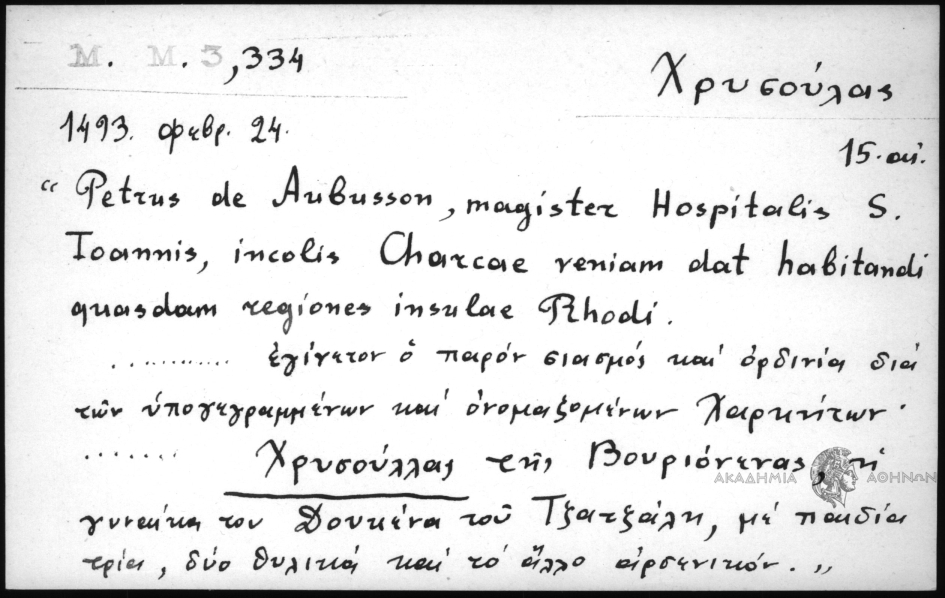 M. M. 3,334
Χρυσούλας
1493. φεβρ. 24.
15. αἰ.
“Petrus de Aubusson, magister Hospitalis S.
Ioannis, incolis Charcae veniam dat habitandi
quasdam regiones insulae Rhodi.
........... ἐγίνετον ὁ παρόν σιασμός καί ὀρδινία διά
τῶν ὑπογεγραμμένων καί ὀνομαζομένων Χαρκιτῶν·
....... Χρυσούλλας τῆς Βουριόνενας, ἡ
ΑΚΑΔΗΜΙΑ ΑΘΗΝΩΝ
γυναίκα του Δουκένα τοῦ Τζατζάλη, μέ παιδία
τρία, δύο θυλικά καί τό ἄλλο ἀρσενικόν.„